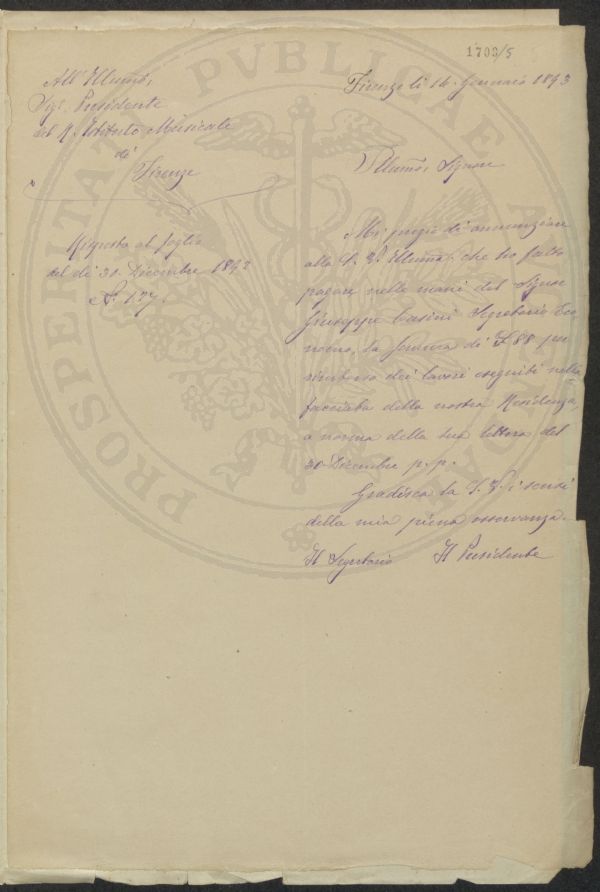 1703/5
PROSPERITATI PVBLICAE
All' Illmo,
Sig. Presidente
del R. Istituto Musicale
di
Firenze
Risposta al foglio
del dì 30 Dicembre 1892
N. 127.
Firenze li 14 Gennaio 1893
Illmo, Signore
Mi pregio di annunziare
alla S. V. Illma, che ho fatto
pagare nelle mani del Signor
Giuseppe Casini Segretario Eco
nomo, la somma di L 88 per
rimborso dei lavori eseguiti nella
facciata della nostra Residenza,
a norma della sua lettera del
30 Dicembre p.p.
Gradisca la S. V. i sensi
della mia piena osservanza.
Il Segretario Il Presidente